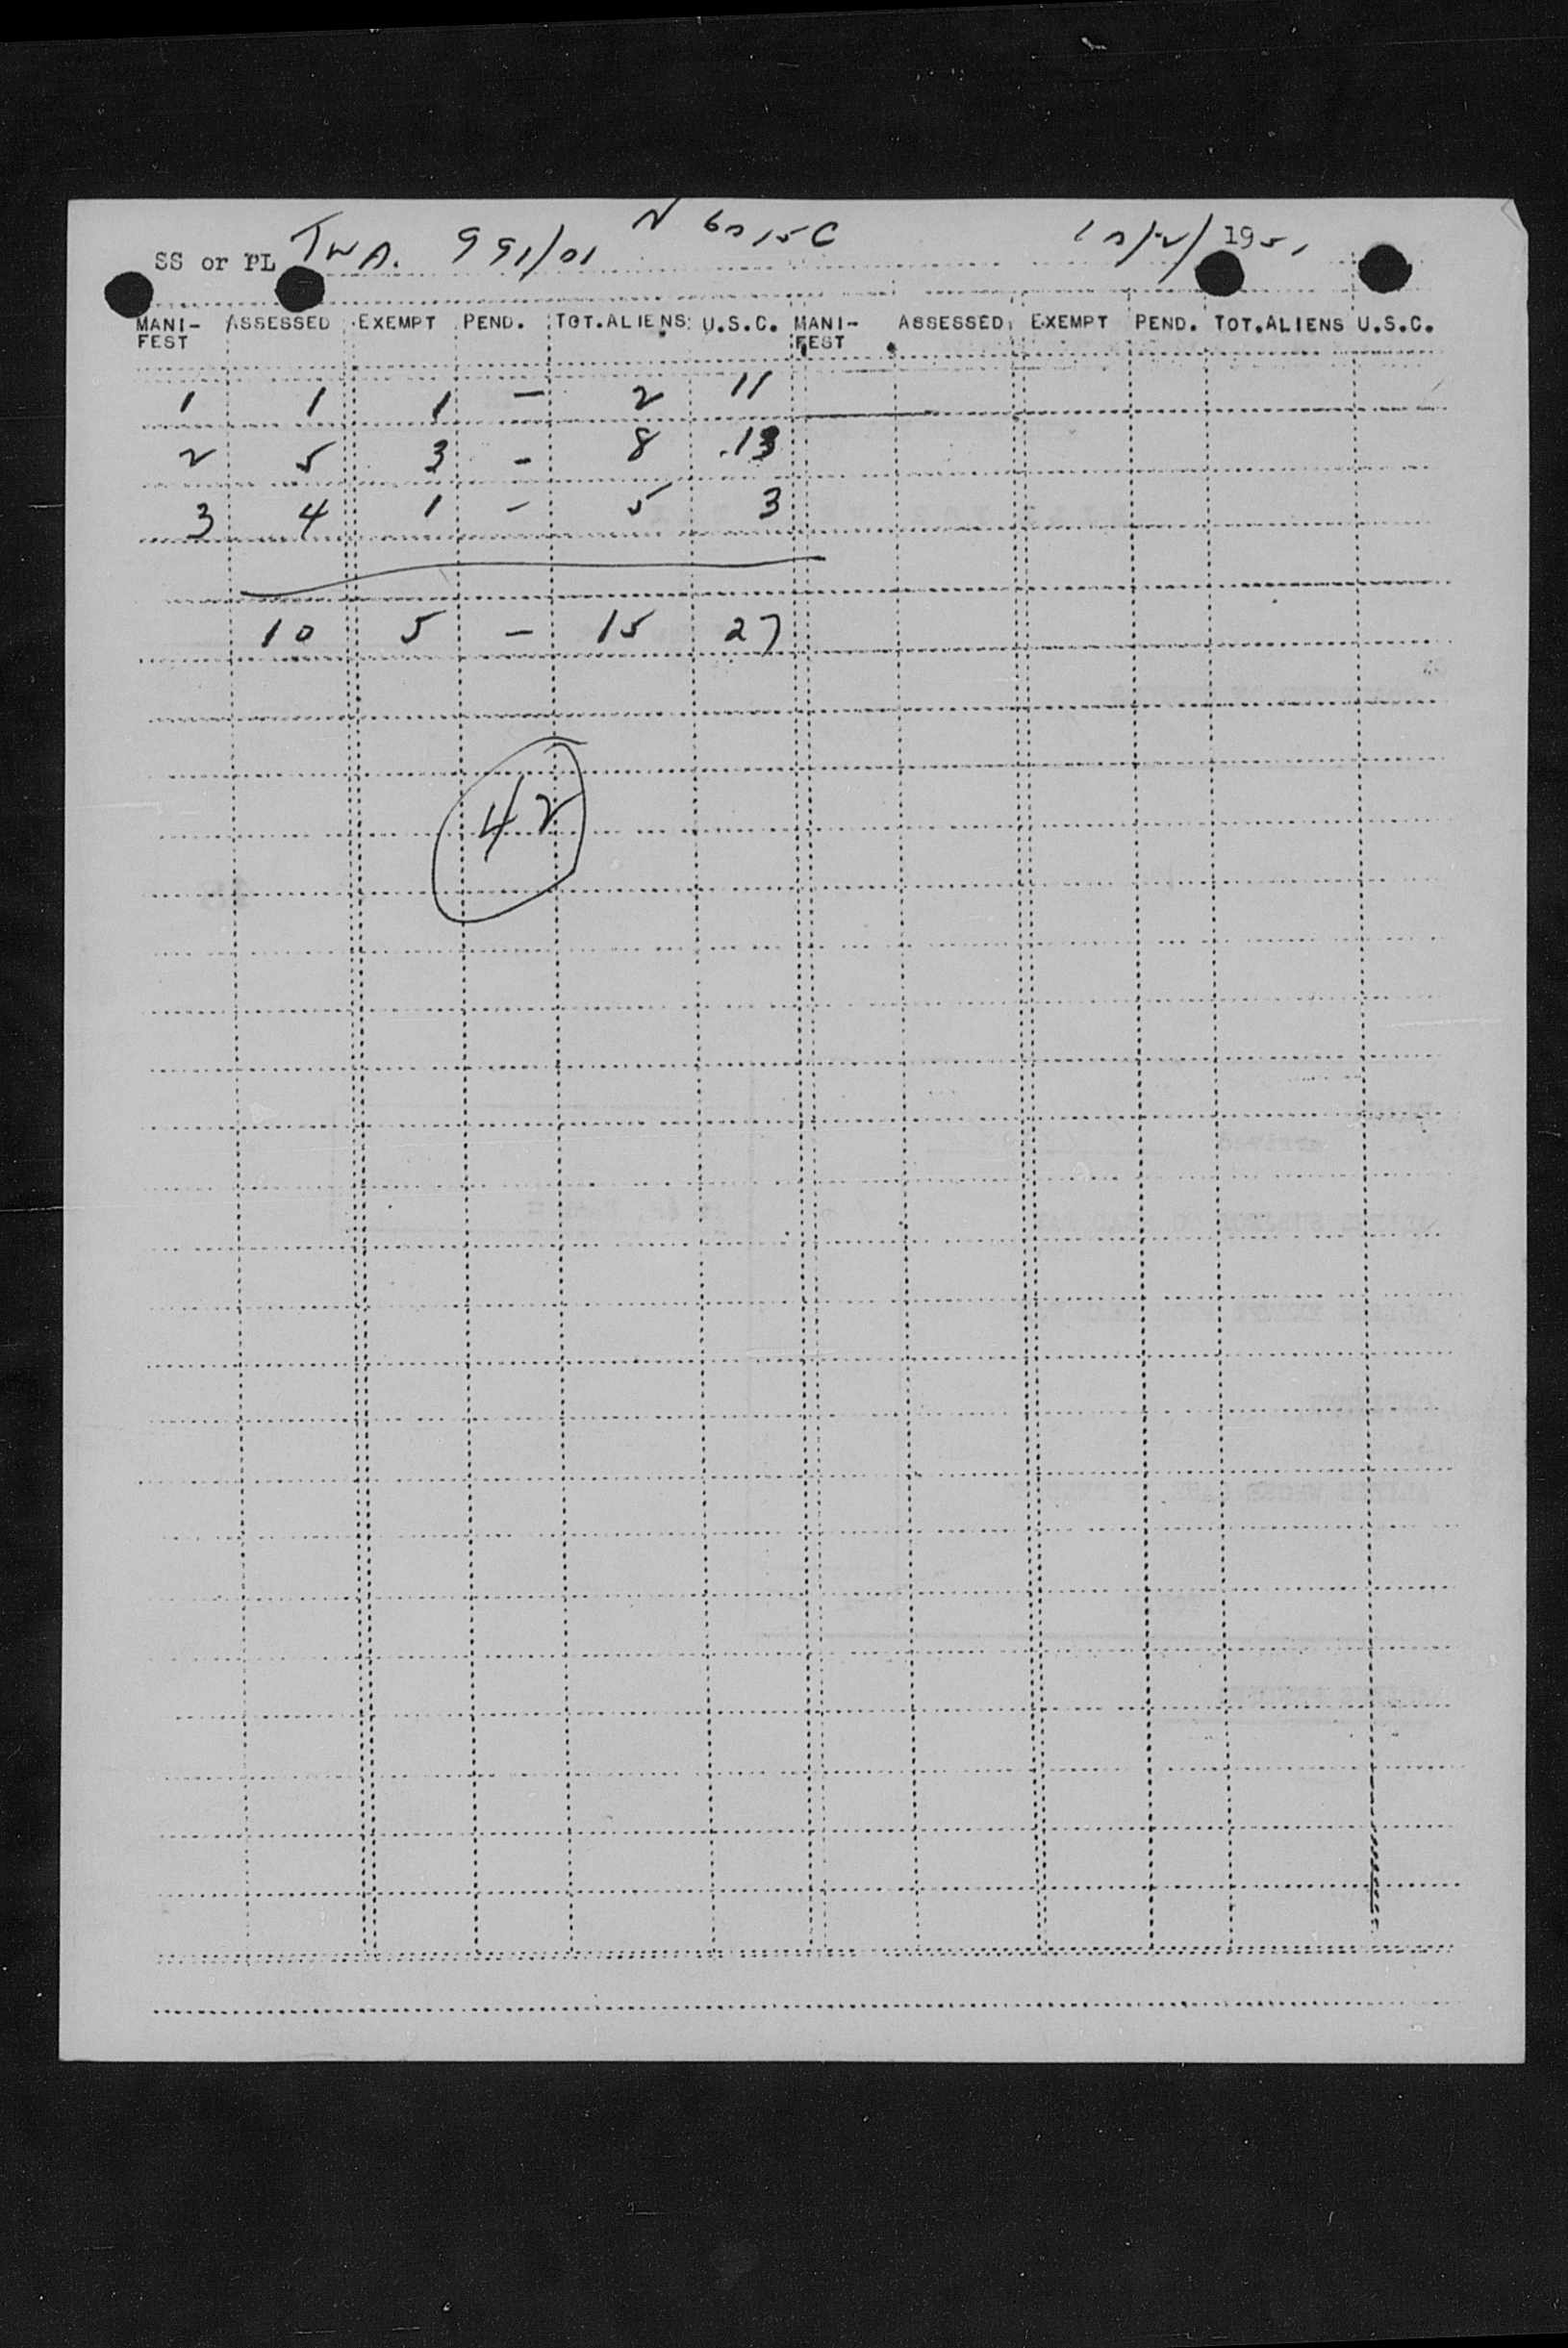 SS or PL TWA. 991/01 N 6015C 10/2/1951
MANI- ASSESSED EXEMPT PEND. TOT.ALIENS U.S.C. MANI- ASSESSED EXEMPT PEND. TOT.ALIENS U.S.C.
FEST FEST
1 1 1 - 2 11
2 5 3 - 8 13
3 4 1 - 5 3
10 5 - 15 27
42